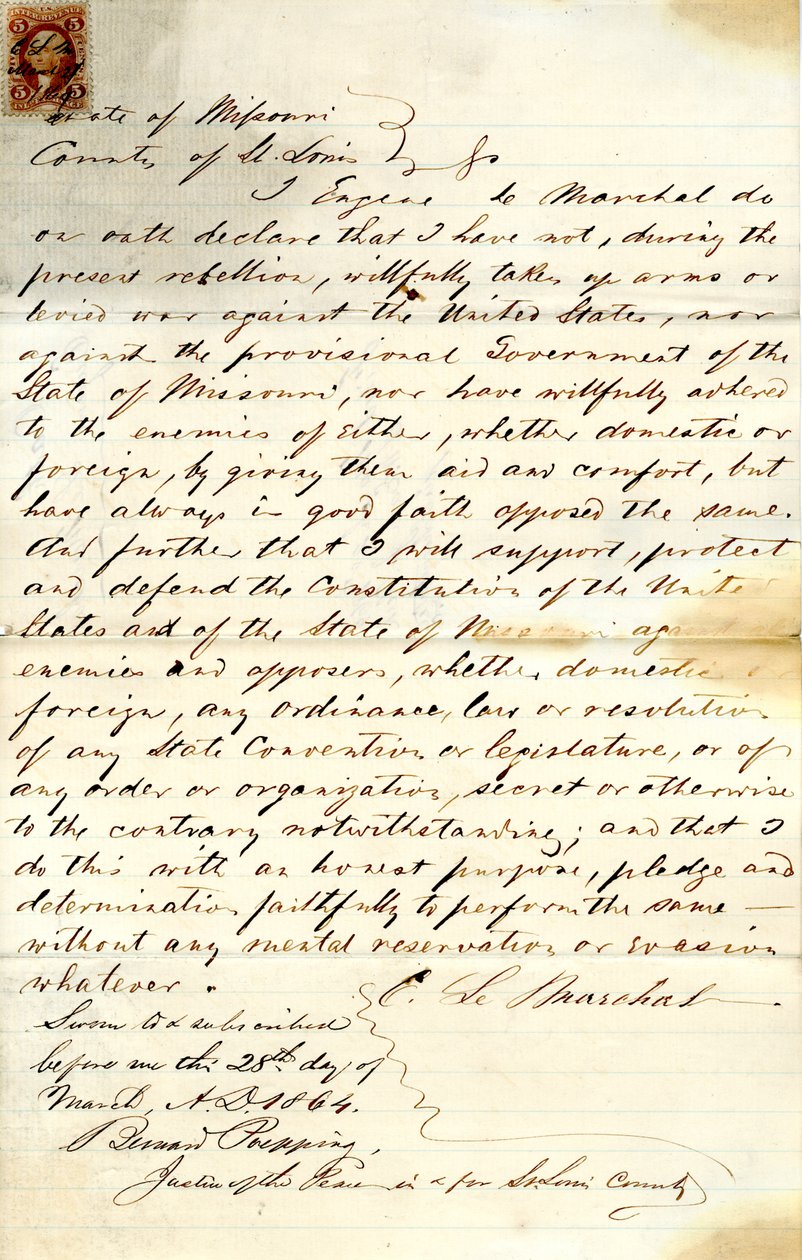 U.S.
INTER. REVENUE
5 5
E L M
March 28
1864
5 5
State of Missouri
County of St. Louis } ss
I Eugene Le Marchal do
on oath declare that I have not, during the
present rebellion, willfully taken up arms or
levied war against the United States, nor
against the provisional Government of the
State of Missouri, nor have willfully adhered
to the enemies of either, whether domestic or
foreign, by giving them aid and comfort, but
have always in good faith opposed the same.
And further that I will support, protect
and defend the Constitution of the United
States and of the State of Missouri against
enemies and opposers, whether domestic or
foreign, any ordinance, law or resolution
of any State Convention or legislature, or of
any order or organization, secret or otherwise
to the contrary notwithstanding; and that I
do this with an honest purpose, pledge and
determination faithfully to perform the same —
without any mental reservation or evasion
whatever.
E. Le Marchal
Sworn to & subscribed
before me this 28th day of
March, A.D. 1864.
Bernard Poepping,
Justice of the Peace in & for St. Louis County